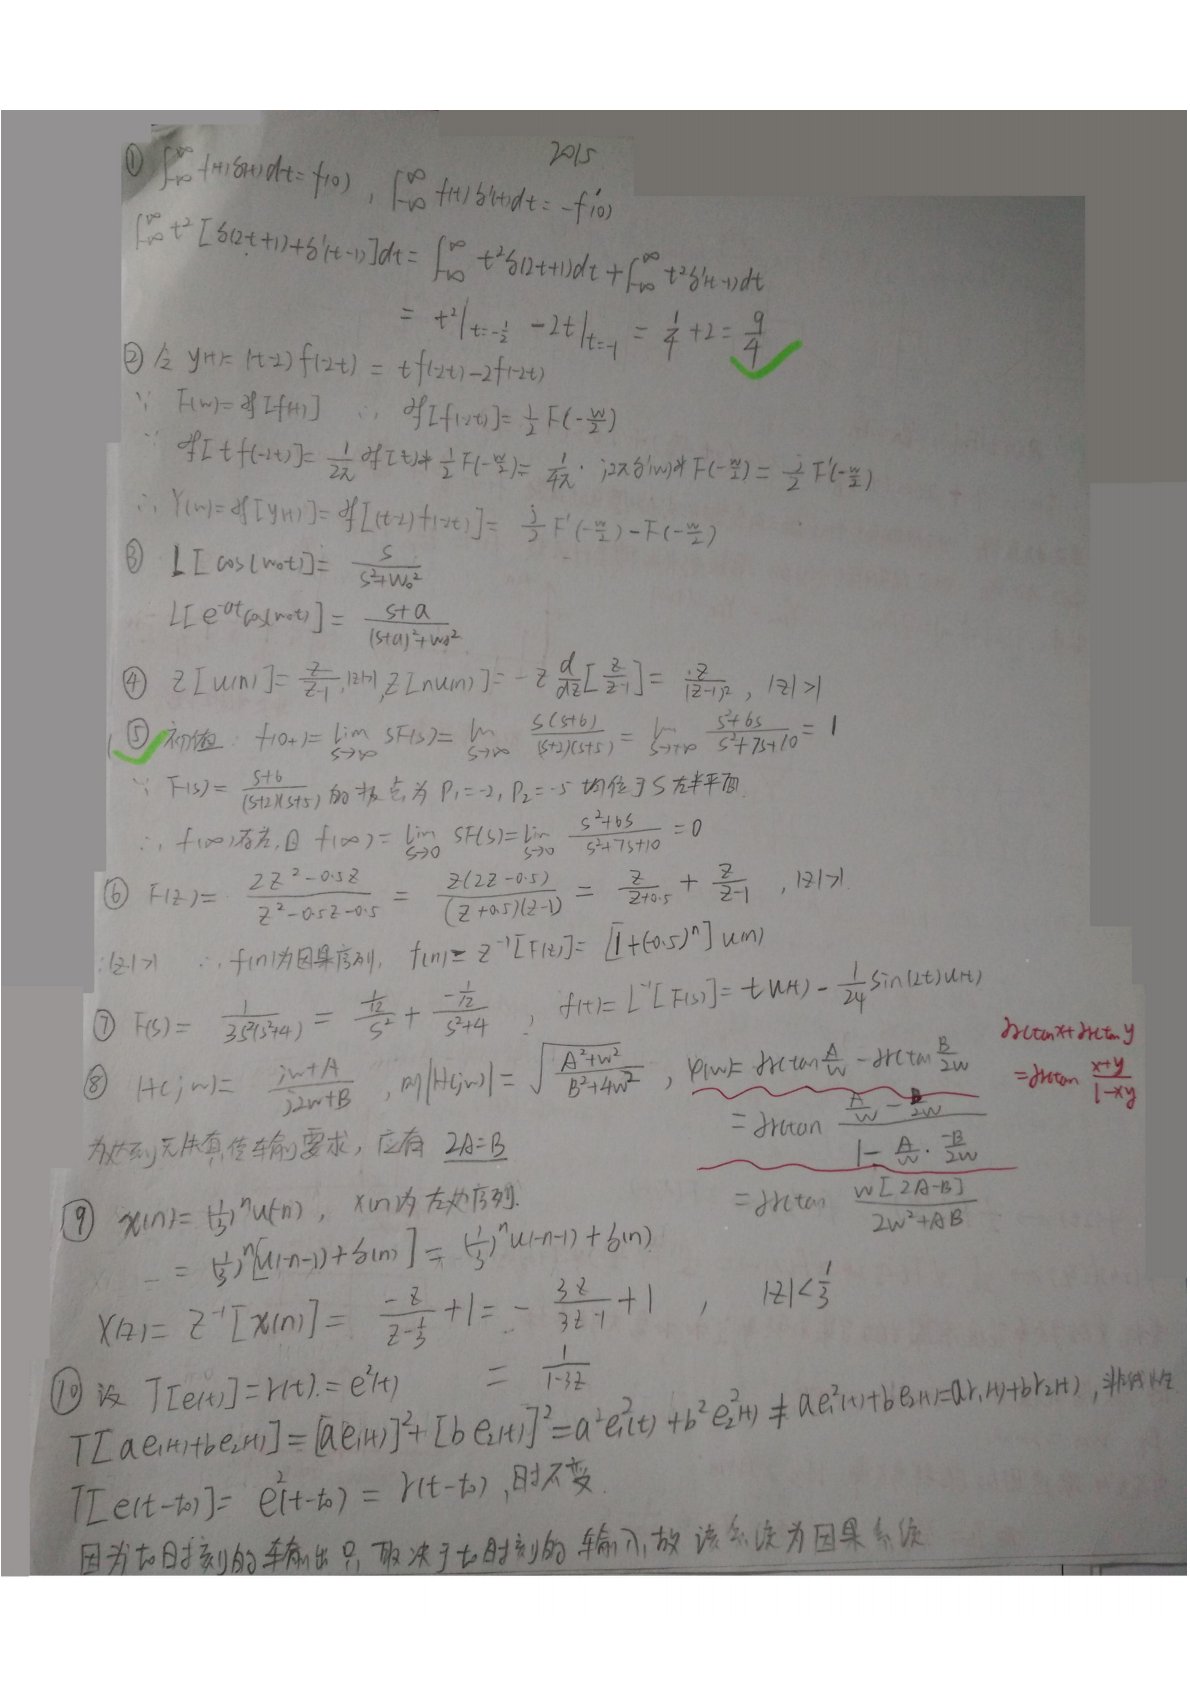 2015
① ∫_{-∞}^{∞} f(t)δ(t)dt = f(0) , ∫_{-∞}^{∞} f(t)δ'(t)dt = -f'(0)
∫_{-∞}^{∞} t²[δ(2t+1)+δ'(t-1)]dt = ∫_{-∞}^{∞} t²δ(2t+1)dt + ∫_{-∞}^{∞} t²δ'(t-1)dt
= t²|_{t=-1/2} - 2t|_{t=-1} = 1/4 + 2 = 9/4
② 令 y(t) = (t-2)f(-2t) = tf(-2t) - 2f(-2t)
∵ F(w) = ℱ[f(t)] ∴ ℱ[f(-2t)] = 1/2 F(-w/2)
∵ ℱ[tf(-2t)] = 1/2π ℱ[t] * 1/2 F(-w/2) = 1/4π · j2πδ'(w) * F(-w/2) = j/2 F'(-w/2)
∴ Y(w) = ℱ[y(t)] = ℱ[(t-2)f(-2t)] = j/2 F'(-w/2) - F(-w/2)
③ L[cos(w₀t)] = s/(s²+w₀²)
L[e^{-at}cos(w₀t)] = (s+a)/((s+a)²+w₀²)
④ Z[u(n)] = z/(z-1), |z|>1, Z[nu(n)] = -z d/dz[z/(z-1)] = z/(z-1)², |z|>1
⑤ 初值 f(0+) = lim_{s→∞} sF(s) = lim_{s→∞} s(s+6)/((s+2)(s+5)) = lim_{s→+∞} (s²+6s)/(s²+7s+10) = 1
∵ F(s) = (s+6)/((s+2)(s+5)) 的极点为 P₁=-2, P₂=-5 均位于S左半平面.
∴ f(∞)存在,且 f(∞) = lim_{s→0} sF(s) = lim_{s→0} (s²+6s)/(s²+7s+10) = 0
⑥ F(z) = (2z²-0.5z)/(z²-0.5z-0.5) = z(2z-0.5)/((z+0.5)(z-1)) = z/(z+0.5) + z/(z-1) , |z|>1
∵|z|>1 ∴ f(n)为因果序列, f(n) = Z⁻¹[F(z)] = [1+(-0.5)ⁿ]u(n)
⑦ F(s) = 1/(3s²(s²+4)) = (1/12)/s² + (-1/12)/(s²+4) , f(t) = L⁻¹[F(s)] = tu(t) - 1/24 sin(2t)u(t)
⑧ H(jw) = (jw+A)/(j2w+B) , 则|H(jw)| = √((A²+w²)/(B²+4w²)) , φ(w) = arctan A/w - arctan B/2w
arctan x + arctan y
= arctan (x+y)/(1-xy)
= arctan (A/w - B/2w)/(1 - A/w · -B/2w)
为达到无失真传输的要求, 应有 2A=B
= arctan w[2A-B]/(2w²+AB)
⑨ x(n) = (1/3)ⁿu(-n) , x(n)为左边序列.
= (1/3)ⁿ[u(-n-1)+δ(n)] = (1/3)ⁿu(-n-1) + δ(n)
X(z) = Z⁻¹[x(n)] = -z/(z-1/3) + 1 = - 3z/(3z-1) + 1 , |z|<1/3
= 1/(1-3z)
⑩ 设 T[e(t)] = r(t) = e²(t)
T[ae₁(t)+be₂(t)] = [ae₁(t)]² + [be₂(t)]² = a²e₁²(t) + b²e₂²(t) ≠ ae₁²(t)+be₂²(t) = ar₁(t)+br₂(t) , 非线性
T[e(t-t₀)] = e²(t-t₀) = r(t-t₀) , 时不变.
因为t₀时刻的输出只取决于t₀时刻的输入,故该系统为因果系统